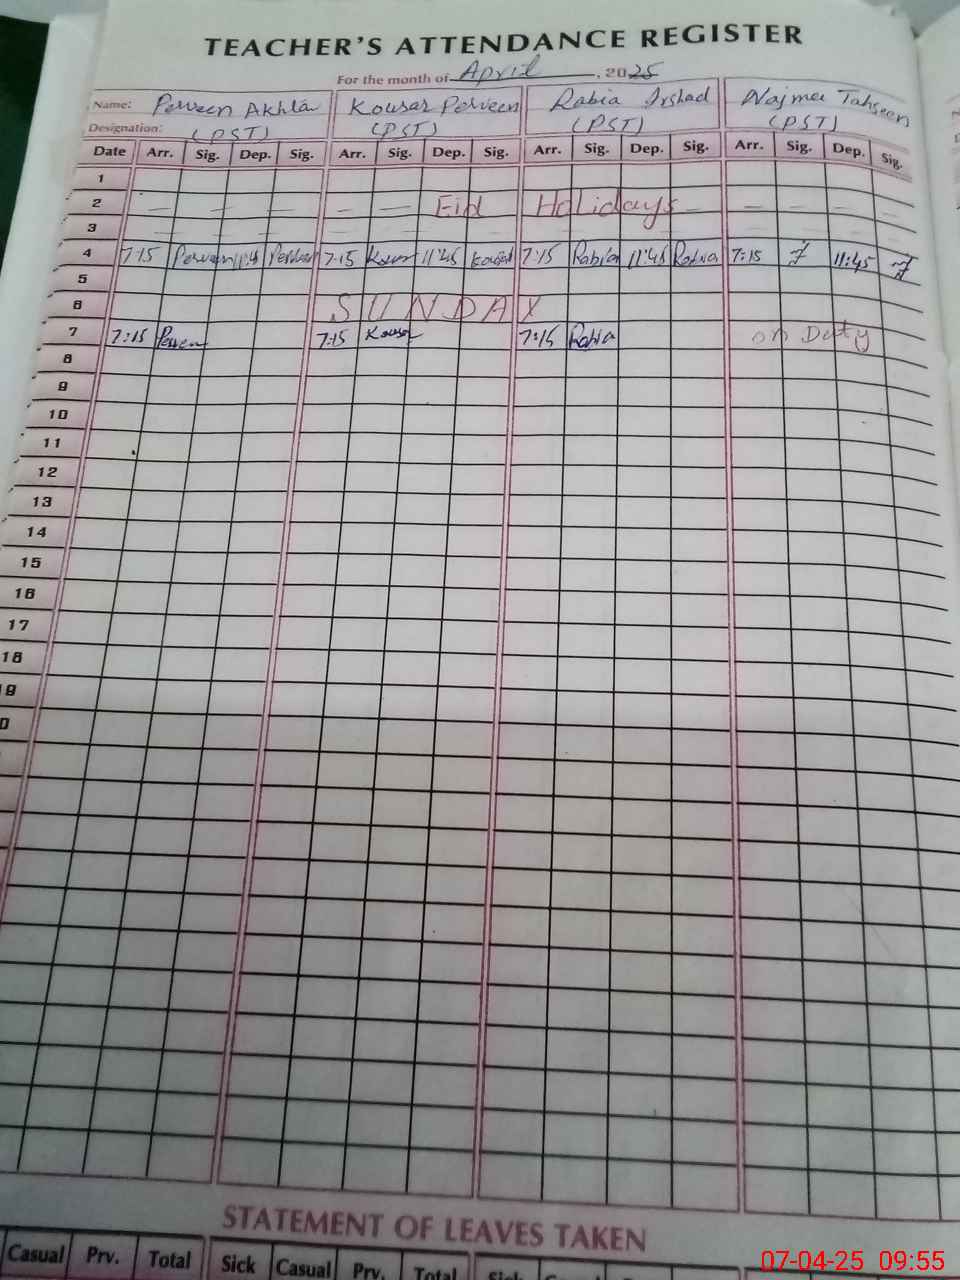 TEACHER'S ATTENDANCE REGISTER
For the month of April, 2025
Name: Perveen Akhta Kousar Perveen Rabia Irshad Najmee Tahseen
Designation: (PST) (PST) (PST) (PST)
Date Arr. Sig. Dep. Sig. Arr. Sig. Dep. Sig. Arr. Sig. Dep. Sig. Arr. Sig. Dep. Sig.
1
2 Eid Holidays
3
4 7:15 Perveen 11:45 Perveen 7:15 Kousar 11:45 Kousar 7:15 Rabia 11:45 Rabia 7:15 11:45
5
6 SUNDAY
7 7:15 Perveen 7:15 Kousar 7:15 Rabia on Duty
8
9
10
11
12
13
14
15
16
17
18
9
0
STATEMENT OF LEAVES TAKEN
Casual Prv. Total Sick Casual Prv. Total Sick Casual
07-04-25 09:55